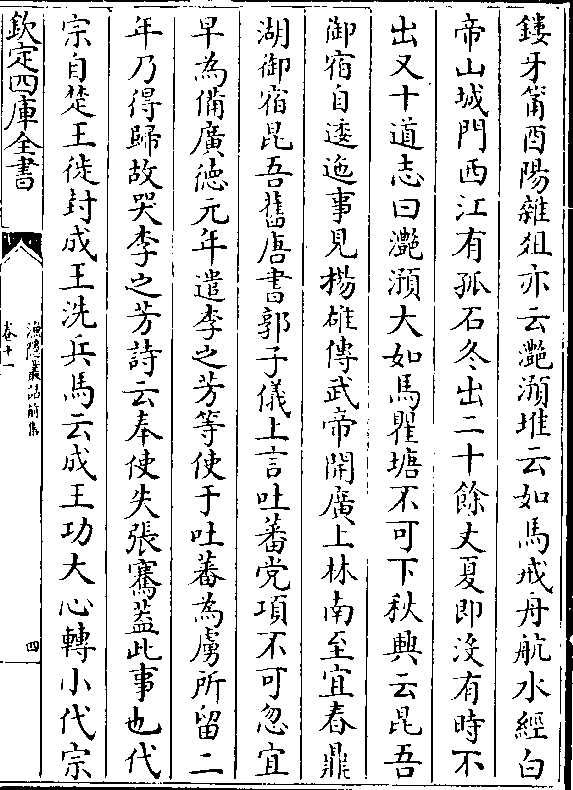 鏤牙筩酉陽雜俎亦云灔澦堆云如馬戒舟航水經白
帝山城門西江有孤石冬出二十餘丈夏即沒有時不
出又十道志曰灔澦大如馬瞿塘不可下秋興云昆吾
御宿自逶迤事見楊雄傳武帝開廣上林南至宜春鼎
湖御宿昆吾舊唐書郭子儀上言吐蕃党項不可忽宜
早為備廣徳元年遣李之芳等使于吐蕃為虜所留二
年乃得歸故哭李之芳詩云奉使失張騫葢此事也代
宗自楚王徙封成王洗兵馬云成王功大心轉小代宗
欽定四庫全書
漁隱叢話前集
卷十一
四